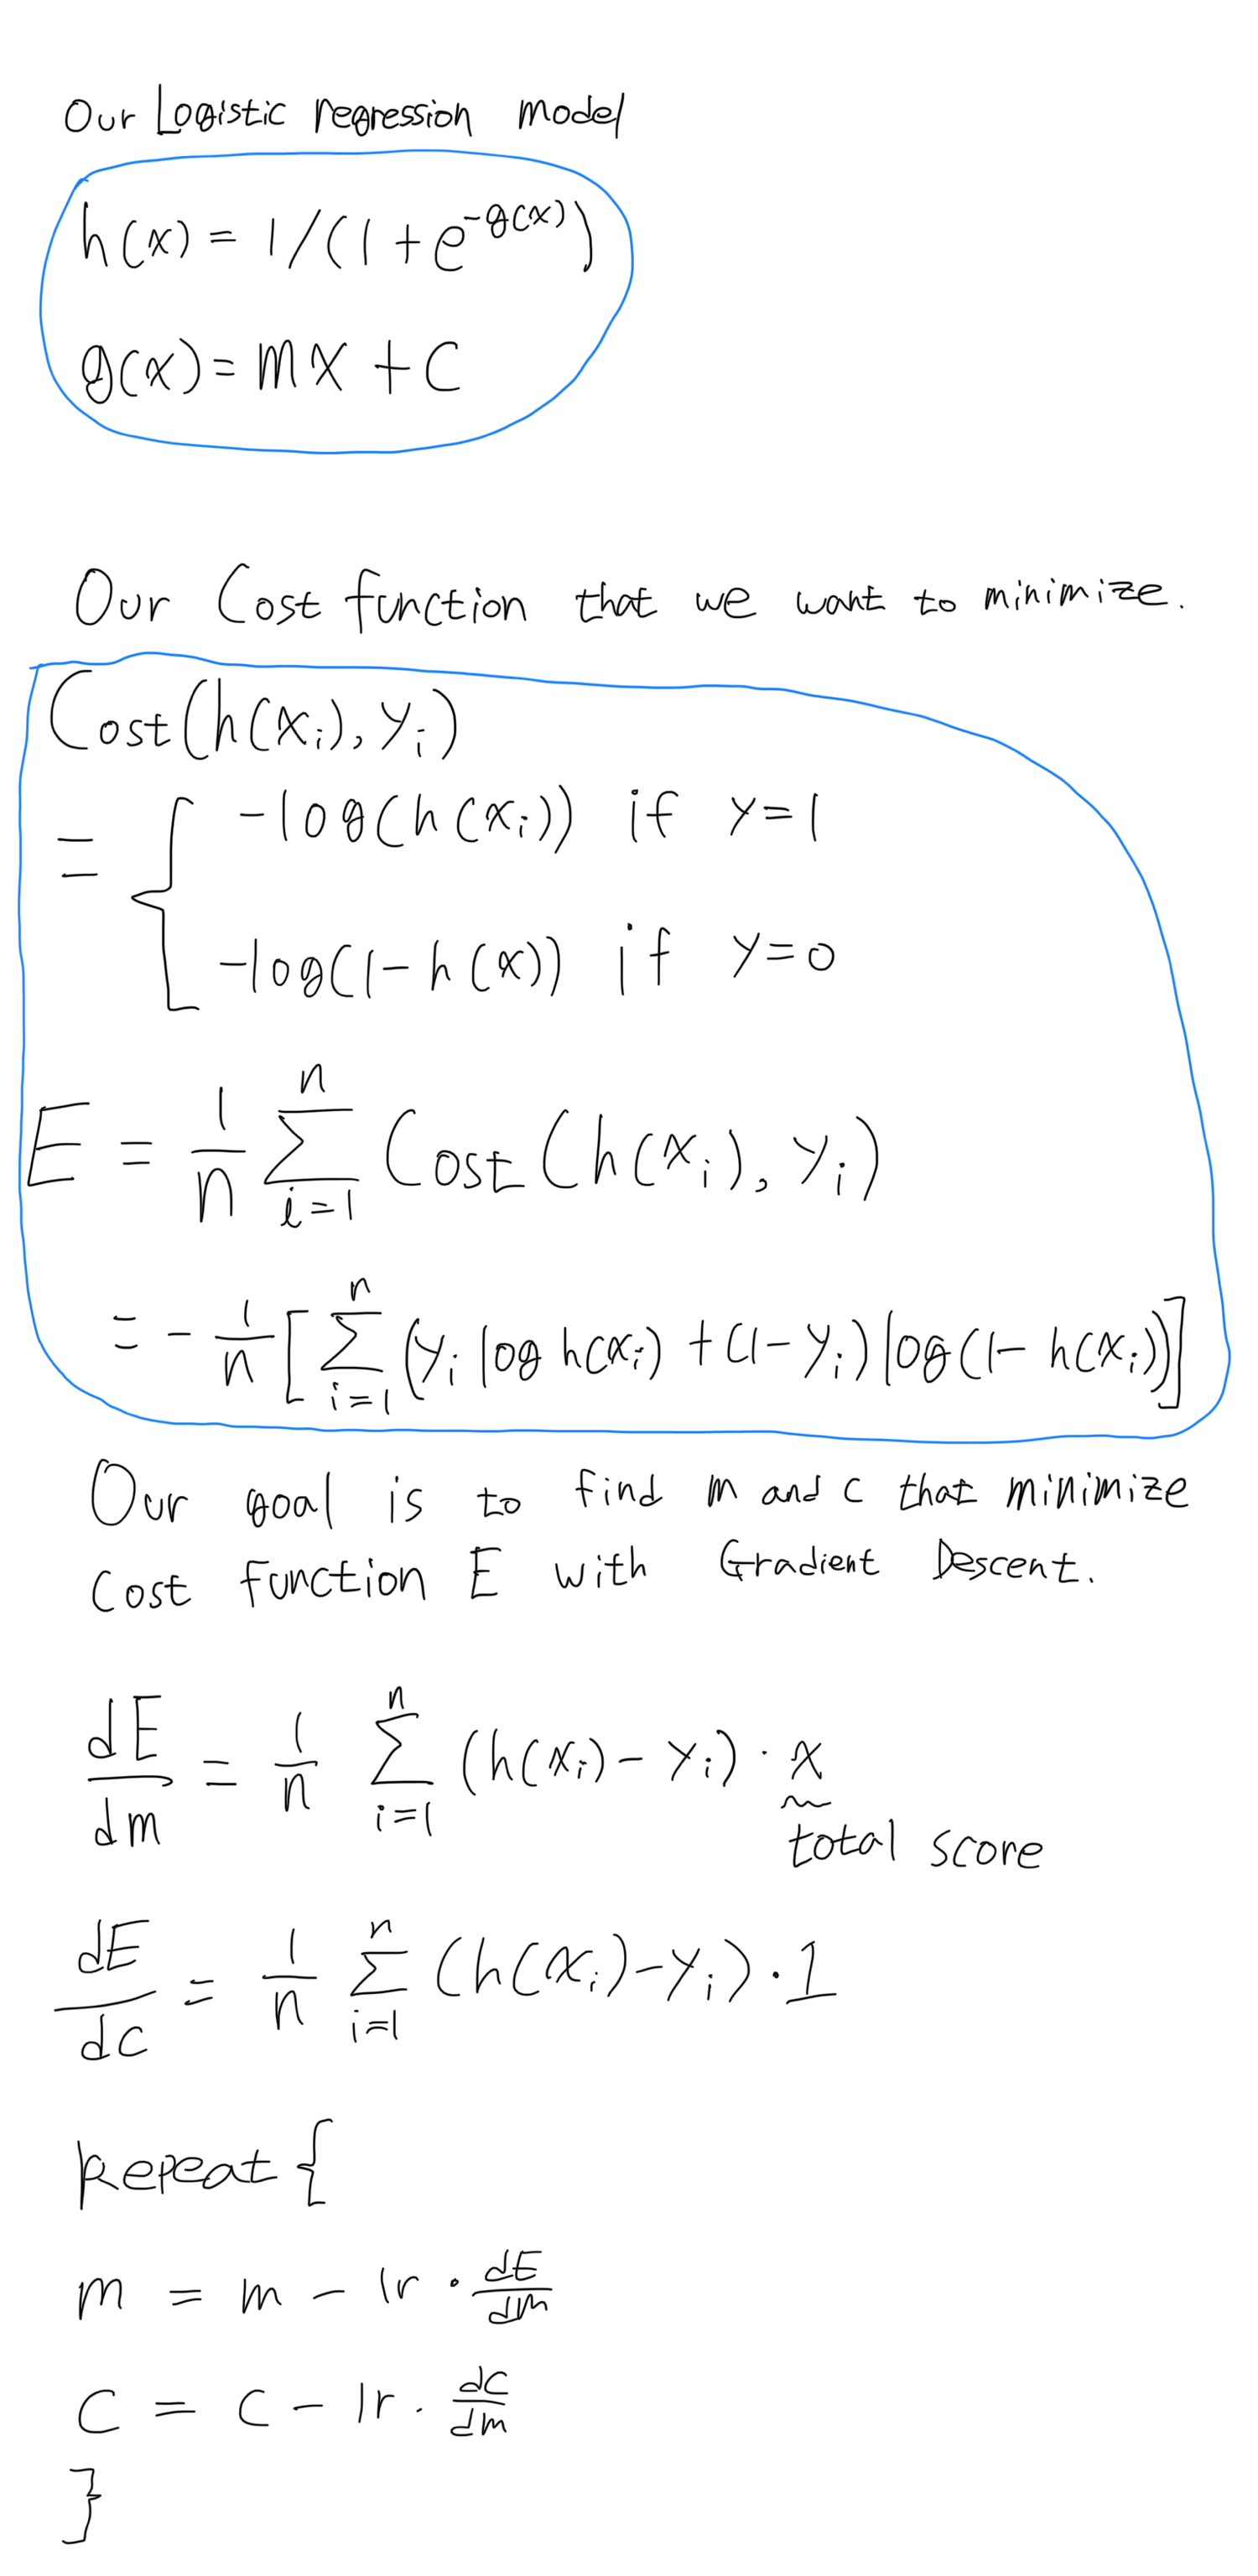 Our Logistic regression model
h(x) = 1/(1+e^{-g(x)})
g(x) = mx + c
Our Cost function that we want to minimize.
Cost(h(x_i), y_i)
= { -log(h(x_i)) if y=1
-log(1-h(x)) if y=0
E = \frac{1}{n} \sum_{i=1}^{n} Cost(h(x_i), y_i)
= - \frac{1}{n} [ \sum_{i=1}^{n} (y_i log h(x_i) + (1-y_i) log(1-h(x_i))]
Our goal is to find m and c that minimize
cost function E with Gradient Descent.
\frac{dE}{dm} = \frac{1}{n} \sum_{i=1}^{n} (h(x_i) - y_i) · x
total score
\frac{dE}{dc} = \frac{1}{n} \sum_{i=1}^{n} (h(x_i) - y_i) · 1
Repeat {
m = m - lr · \frac{dE}{dm}
c = c - lr · \frac{dc}{dm}
}